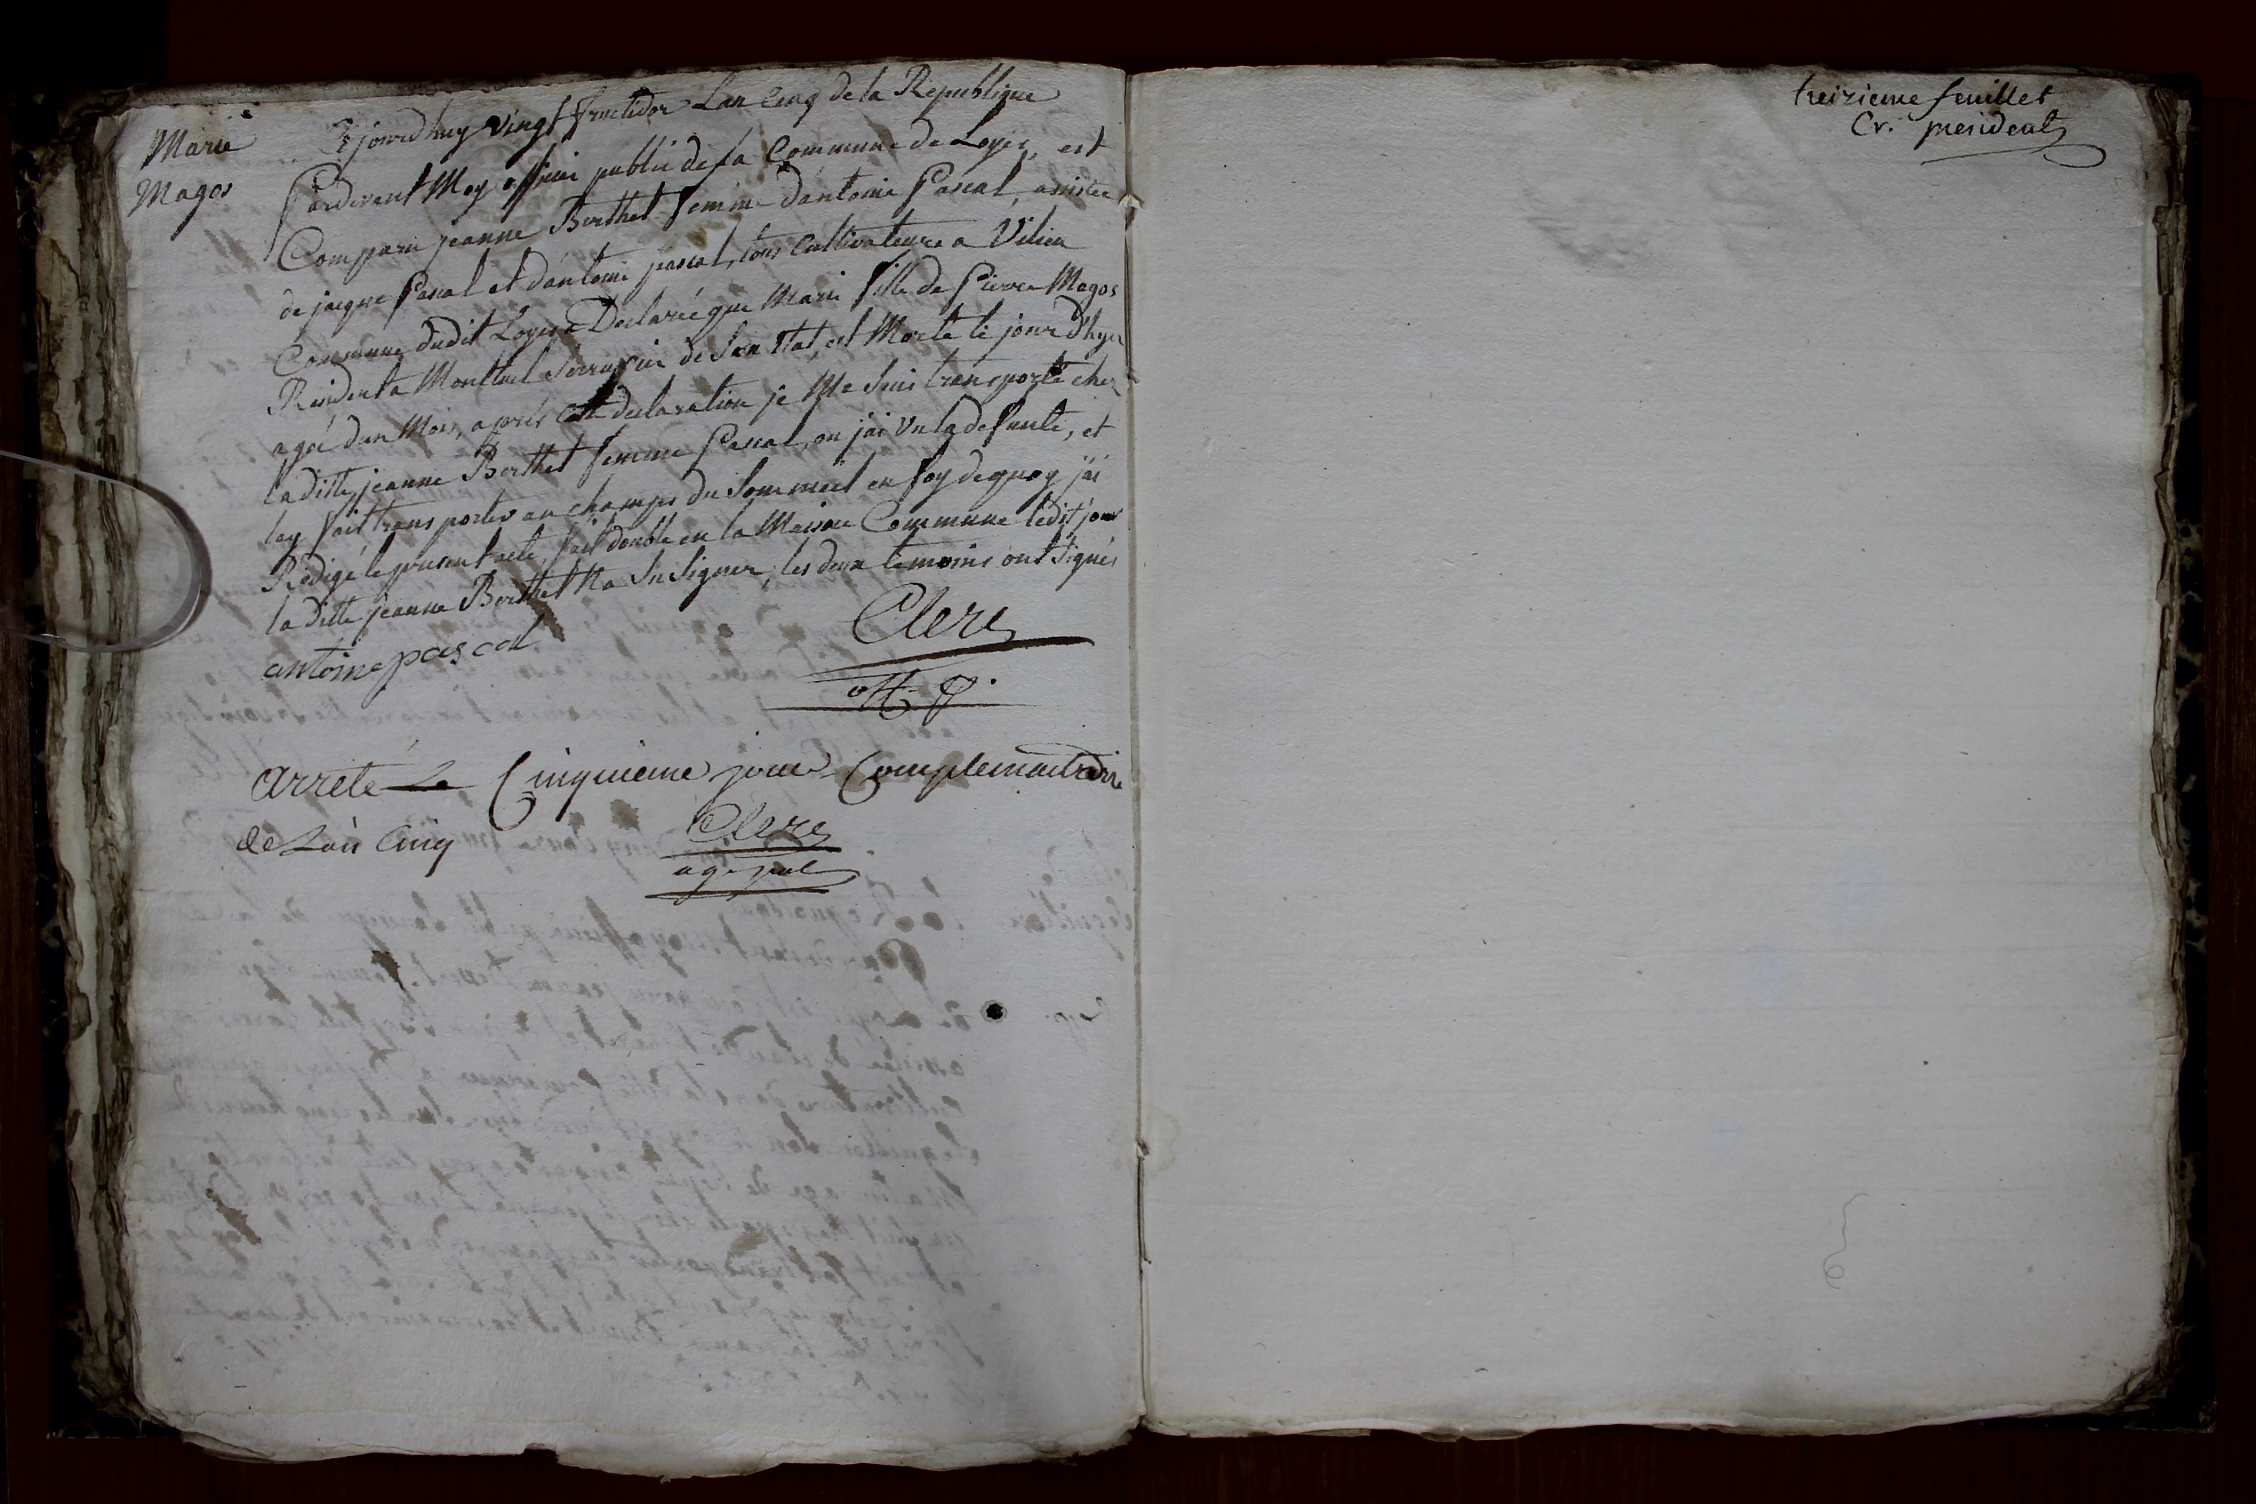 Marie
Magos
Cejourdhuy vingt fructidor Lan Cinq de la Republique
Pardevant Moy officier public de la Commune de Loyes, est
Comparu jeanne Berthet femme dantoine Pascal, assistée
de jacque Pascal et dantoine pascal, tous cultivateurs a Vilieu
Commune dudit Loyes a Declarée que Marie fille de Pierre Magos
Resident a Montluel Serrurier de Son Etat, est Morte le jour D'hyer
agée dun Mois, après cette declaration je Me Suis transporté chez
la ditte jeanne Berthet femme Pascal, ou jai Vu la defunte, et
lay fait transporter au champs du Sommeil en foy de quoy j'ai
Redigé le present acte, fait double en la Maison Commune ledit jour
la ditte jeanne Berthet Na Su Signer, les deux temoins ont Signés
antoine pascal
Clerc
off. p.
arrete Le Cinquieme jour Complementaire
de Lan Cinq
Clerc
ag. pal
treizieme feuillet
Cr. president